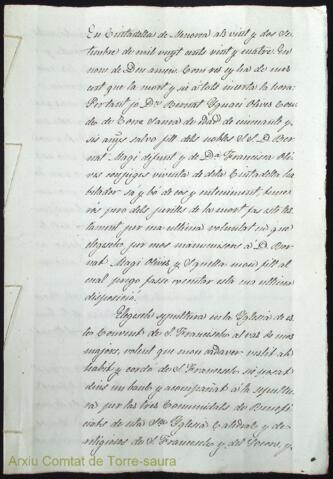 En Ciutadella de Menorca als vint y dos Se-
timbre de mil vuyt cents vint y cuatre. En
nom de Deu amen. Com res hy ha de mes
cert que la mort y sia á tots incerta la hora:
Pertant jo Dn. Bernat Ygnaci Olives Con-
de de Torre Saura de edad de cincuante y
sis anys salvo fill dels nobles S.S. D. Ber-
nat Magi difunt y de Da. Francisca Oli-
ves conjuges vivinta de dita Ciutadella ha
bitador sá y bó de cos y enteniment, teme-
rós pero dels perills de la mort fas est tes-
tament por ma ultima voluntat en que
elegesch per mos manumesors á D. Ber-
nat Magi Olives y Squella mon fill al
cual prego fasse executar esta ma ultima
disposició.
Elegesch sepultura en la Yglesia de es-
te Convent de S. Francisco al vas de mos
majors, volent que mon cadaver vestit ab
habit y corda de S. Francisco sia posat
dins un baul y acompañat á la sepultu-
ra per las tres Comunidats de Benefi-
ciats de esta Sta. Yglesia Catedral y de
religiosos de S. Francisco y del Socos, y
Arxiu Comtat de Torre-saura